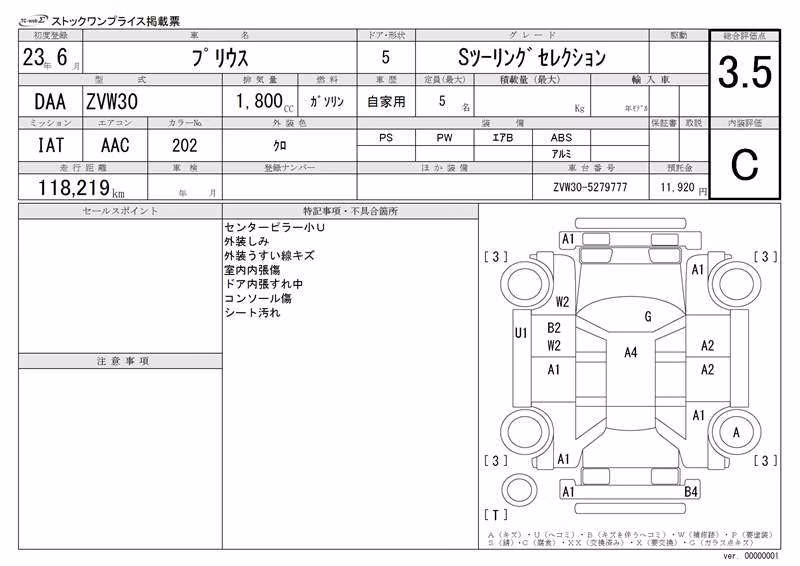 TC-webΣ ストックワンプライス掲載票
初度登録 車名 ドア・形状 グレード 駆動 総合評価点
23年 6月 プリウス 5 Sツーリングセレクション 3.5
型式 排気量 燃料 車歴 定員(最大) 積載量(最大) 輸入車
DAA ZVW30 1,800cc ガソリン 自家用 5名 Kg 年モデル
ミッション エアコン カラーNo. 外装色 装備 保証書 取説 内装評価
IAT AAC 202 クロ PS PW エアB ABS C
アルミ
走行距離 車検 登録ナンバー ほか装備 車台番号 預託金
118,219km 年 月 ZVW30-5279777 11,920円
セールスポイント 特記事項・不具合箇所
センターピラー小U
外装しみ
外装うすい線キズ
室内内張傷
ドア内張すれ中
コンソール傷
シート汚れ
注意事項
A1
[3] A1 [3]
W2
G
U1 B2
W2 A4 A2
A1 A2
A1
A
[3] A1 [3]
A1 B4
[T]
A(キズ)・U(ヘコミ)・B(キズを伴うヘコミ)・W(補修跡)・P(要塗装)
S(錆)・C(腐食)・XX(交換済み)・X(要交換)・G(ガラス点キズ)
ver. 00000001